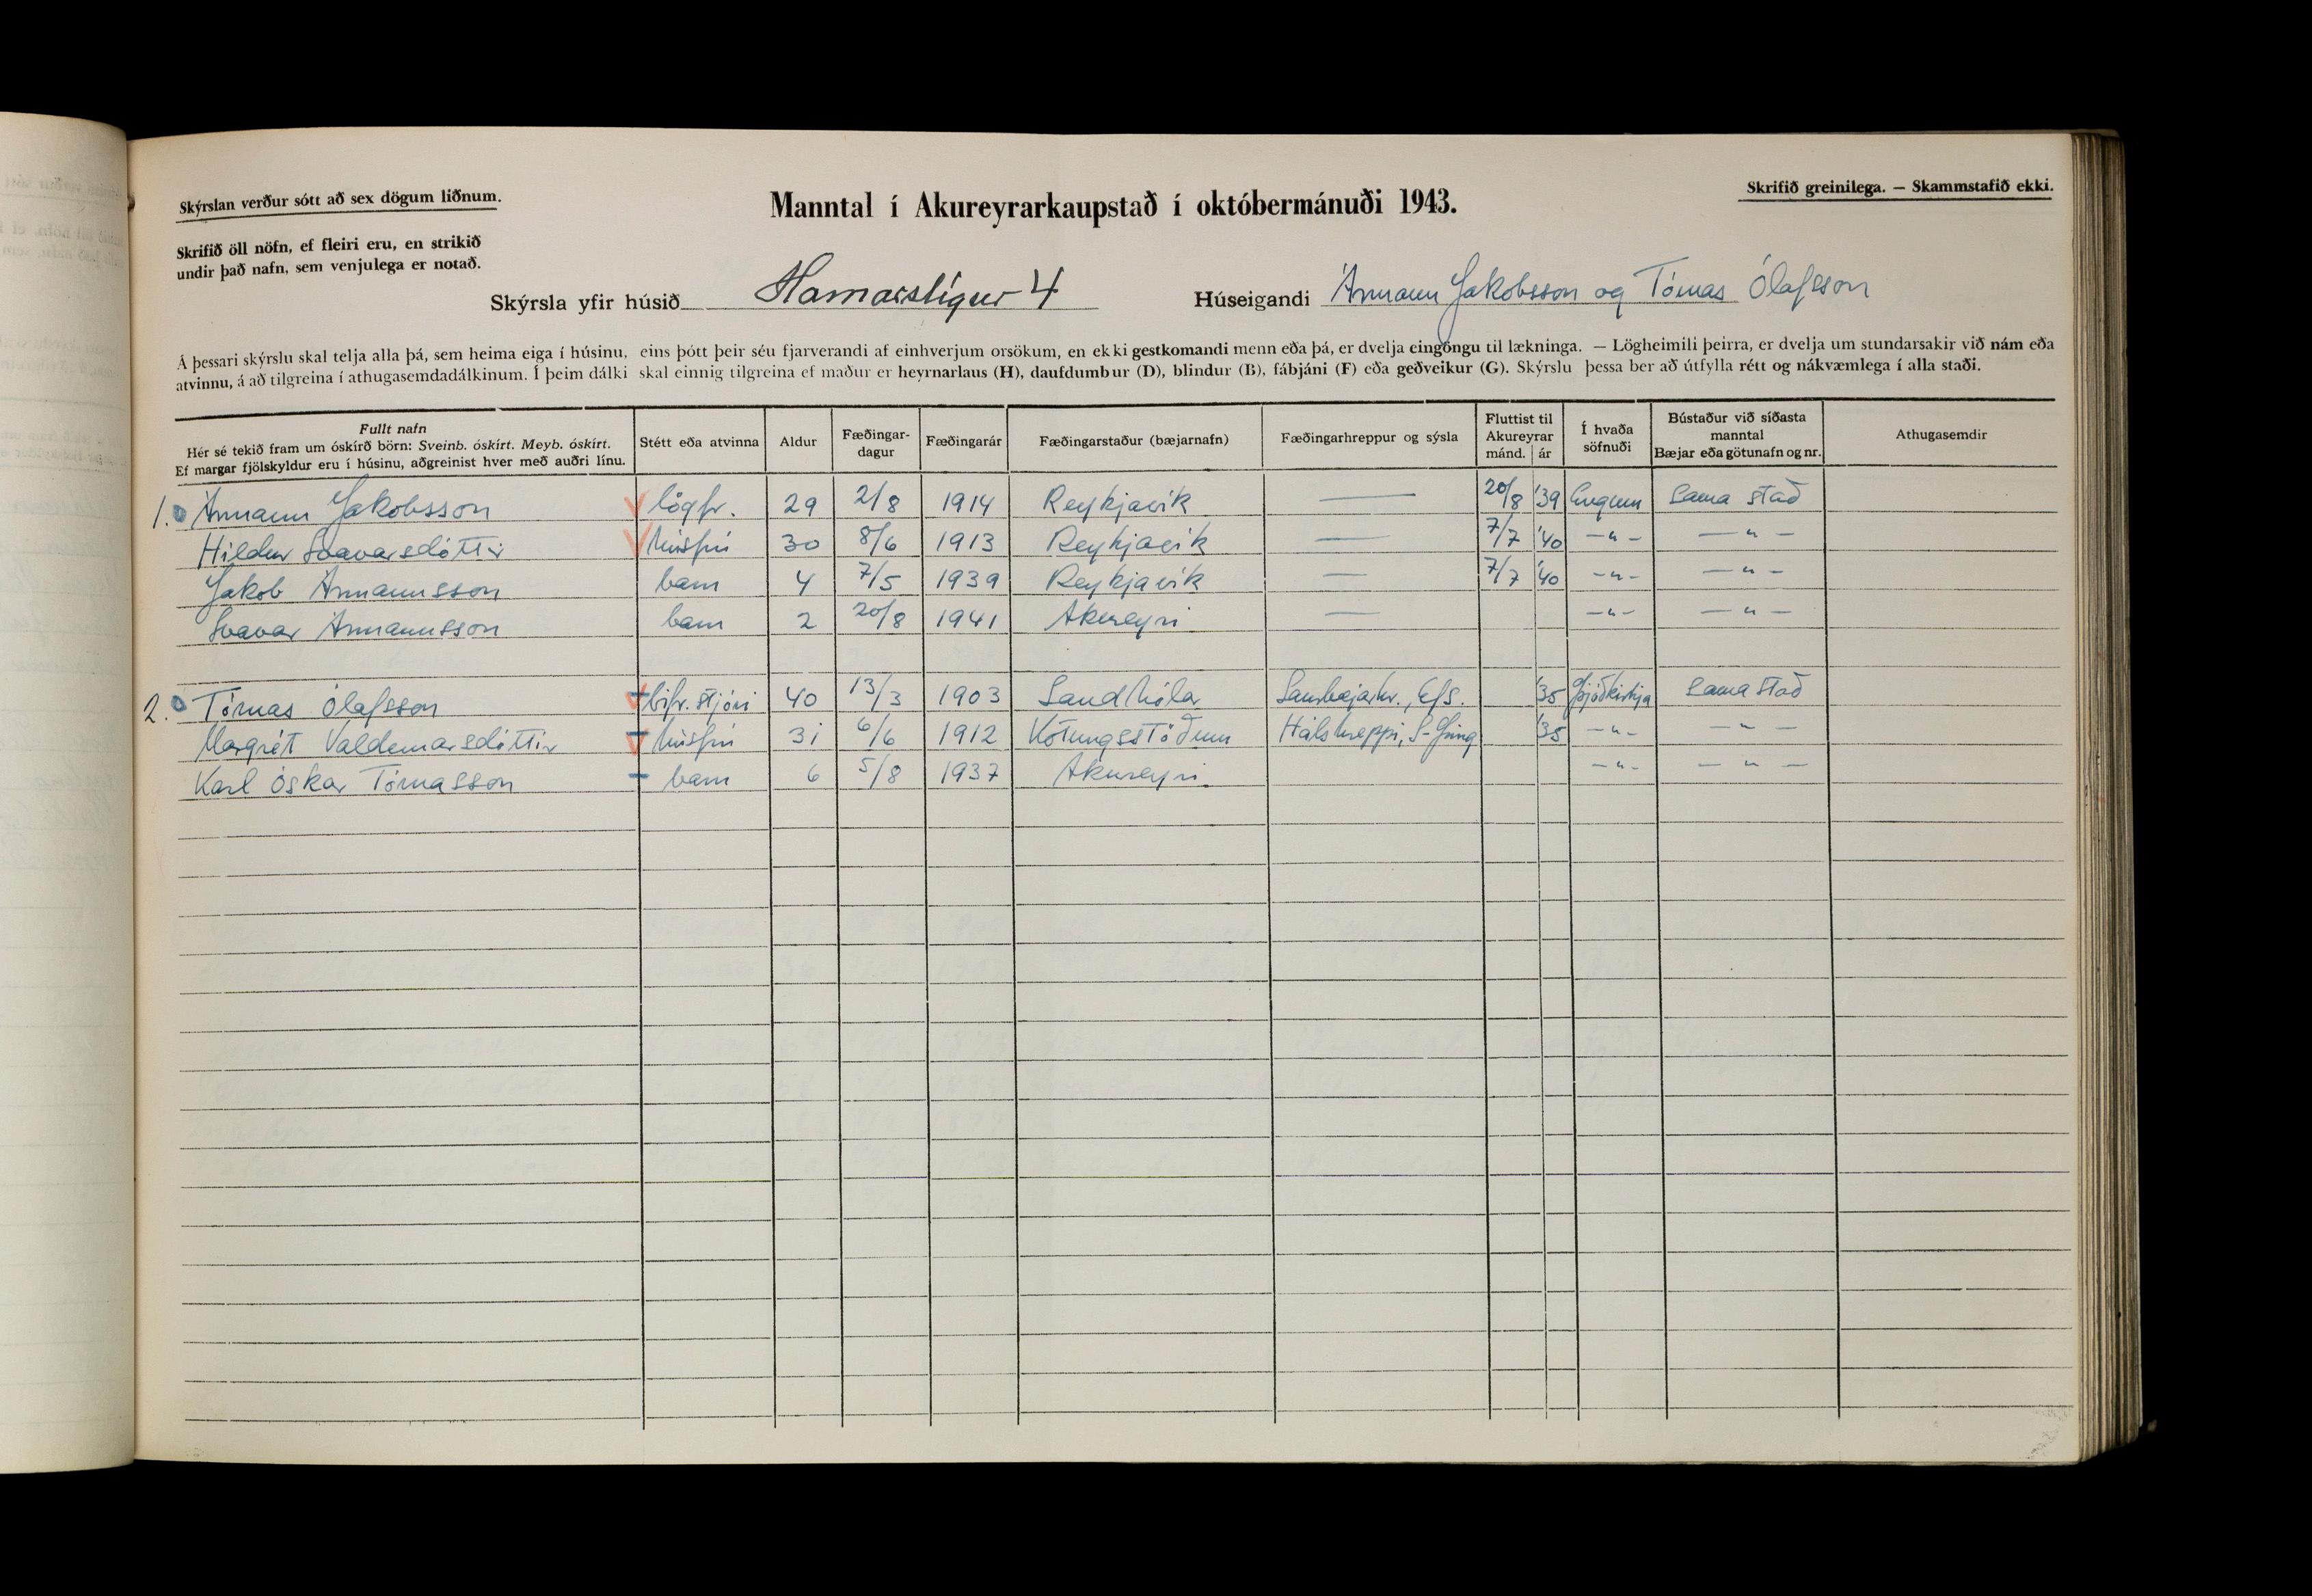 Skýrslan verður sótt að sex dögum liðnum.
Manntal í Akureyrarkaupstað í októbermánuði 1943.
Skrifið greinilega. — Skammstafið ekki.
Skrifið öll nöfn, ef fleiri eru, en strikið
undir það nafn, sem venjulega er notað.
Skýrsla yfir húsið Hamarstígur 4 Húseigandi Ármann Jakobsson og Tómas Ólafsson
Á þessari skýrslu skal telja alla þá, sem heima eiga í húsinu, eins þótt þeir séu fjarverandi af einhverjum orsökum, en ekki gestkomandi menn eða þá, er dvelja eingöngu til lækninga. — Lögheimili þeirra, er dvelja um stundarsakir við nám eða
atvinnu, á að tilgreina í athugasemdadálkinum. Í þeim dálki skal einnig tilgreina ef maður er heyrnarlaus (H), daufdumbur (D), blindur (B), fábjáni (F) eða geðveikur (G). Skýrslu þessa ber að útfylla rétt og nákvæmlega í alla staði.
Fullt nafn
Hér sé tekið fram um óskírð börn: Sveinb. óskírt. Meyb. óskírt.
Ef margar fjölskyldur eru í húsinu, aðgreinist hver með auðri línu.
Stétt eða atvinna
Aldur
Fæðingar-
dagur
Fæðingarár
Fæðingarstaður (bæjarnafn)
Fæðingarhreppur og sýsla
Fluttist til
Akureyrar
mánd. ár
Í hvaða
söfnuði
Bústaður við síðasta
manntal
Bæjar eða götunafn og nr.
Athugasemdir
1. Ármann Jakobsson lögfr. 29 2/8 1914 Reykjavík — 20/8 '39 Engum Sama stað
Hildur Svavarsdóttir húsfrú 30 8/6 1913 Reykjavík — 7/7 '40 -"- -"-
Jakob Ármannsson barn 4 7/5 1939 Reykjavík — 7/7 '40 -"- -"-
Svavar Ármannsson barn 2 20/8 1941 Akureyri — -"- -"-
2. Tómas Ólafsson bifr.stjóri 40 13/3 1903 Sandhóla Saurbæjarhr., Efs. '35 Þjóðkirkja Sama stað
Margrét Valdemarsdóttir húsfrú 31 6/6 1912 Kotungsstöðum Hálshreppi, S-Þing '35 -"- -"-
Karl Óskar Tómasson barn 6 5/8 1937 Akureyri -"- -"-